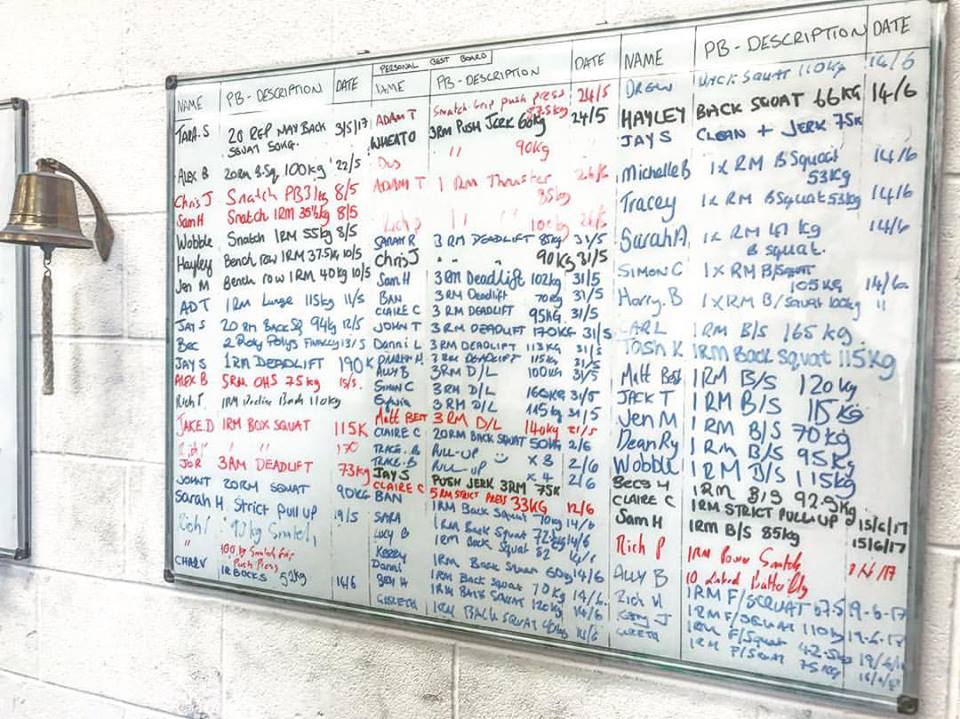 PERSONAL BEST BOARD
NAME PB-DESCRIPTION DATE
TARA.S 20 REP MAV BACK 3/5/17
SQUAT SONG.
ALEX B 20RM B.Sq 100kg 22/5
Chris J Snatch PB 31kg 8/5
Sam H Snatch 1RM 35½kg 8/5
Wobble Snatch 1RM 55kg 8/5
Hayley Bench row 1RM 37.5kg 10/5
Jen M Bench row 1RM 40kg 10/5
AD T 1RM Lunge 115kg 11/5
JAY S 20 RM BACK SQ 94kg 12/5
Bec 2 Roly Polys 13/5
JAY S 1RM DEADLIFT 190K
ALEX B 5RM OHS 75kg 15/5
Rich P 1RM Decline Bench 110kg
JAKE D 1RM BOX SQUAT 115K
" " 170
3RM DEADLIFT 73kg
JOHN T 20RM SQUAT 90kg
Sarah H Strict pull up 19/5
Rich P 90kg Snatch
" 100kg Snatch Grip
Push Press
52kg 14/6
NAME PB-DESCRIPTION DATE
ADAM T Snatch Grip push press 24/5
WHEATO 3RM PUSH JERK 60kg 24/5
" 90kg
ADAM T 1 RM Thruster
85kg
SARAH R 3 RM DEADLIFT 85kg 31/5
Chris J " " 90kg 31/5
Sam H 3 RM Deadlift 102kg 31/5
BAN 3RM Deadlift 70kg 31/5
CLAIRE C 3 RM DEADLIFT 95KG 31/5
JOHN T 3 RM DEADLIFT 170KG 31/5
Danni L 3RM DEADLIFT 113KG 31/5
3 RM DEADLIFT 115kg 31/5
ALLY B 3RM D/L 100kg 31/5
Simon C 3RM D/L 160kg 31/5
Sylvia 3 RM D/L 115kg 31/5
Matt BEST 3 RM D/L 140kg 31/5
CLAIRE C 20RM BACK SQUAT 50kg 2/6
TRACE.B PULL-UP x 3 2/6
TRACE.B PULL-UP x 4 2/6
JAY S PUSH JERK 3RM 75K
CLAIRE C 5RM STRICT PRESS 33KG 12/6
BAN 1RM Back Squat 70kg 14/6
SARA 1RM Back Squat
Lucy B 1RM Back Squat 82
Kerry
Danni 1RM Back Squat 60kg 14/6
1RM Back Squat 70kg 14/6
1RM BACK SQUAT 120kg 14/6
GARETH 1RM BACK SQUAT
NAME PB-DESCRIPTION DATE
DREW BACK SQUAT 110kg 14/6
HAYLEY BACK SQUAT 66KG 14/6
JAY S CLEAN + JERK 75K
Michelle B 1x RM B Squat 14/6
53kg
Tracey 1x RM B Squat 53kg 14/6
Sarah A 1x RM 47 kg 14/6
B squat.
SIMON C 1XRM B/SQUAT
105KG 14/6
Harry.B 1XRM B/squat 100kg "
CARL 1RM B/S 165 kg
Tosh K 1RM Back squat 115kg
Matt Best 1RM B/S 120kg
JACK T 1RM B/S 115kg
Jen M 1RM B/S 70kg
Dean Ry 1RM B/S 95kg
Wobble 1RM B/S 115kg
Becs H 1RM B/S 92.5kg
CLAIRE C 1RM STRICT PULL UP 15/6/17
Sam H 1RM B/S 85kg 15/6/17
Rich P 1RM Power Snatch
ALLY B 10 Linked Butterfly
Rich H 1RM F/SQUAT 67.5 19-6-17
1RM F/SQUAT 110kg 19-6-17
GARETH 1RM F/Squat 42.5kg
1RM F/Squat 75kg